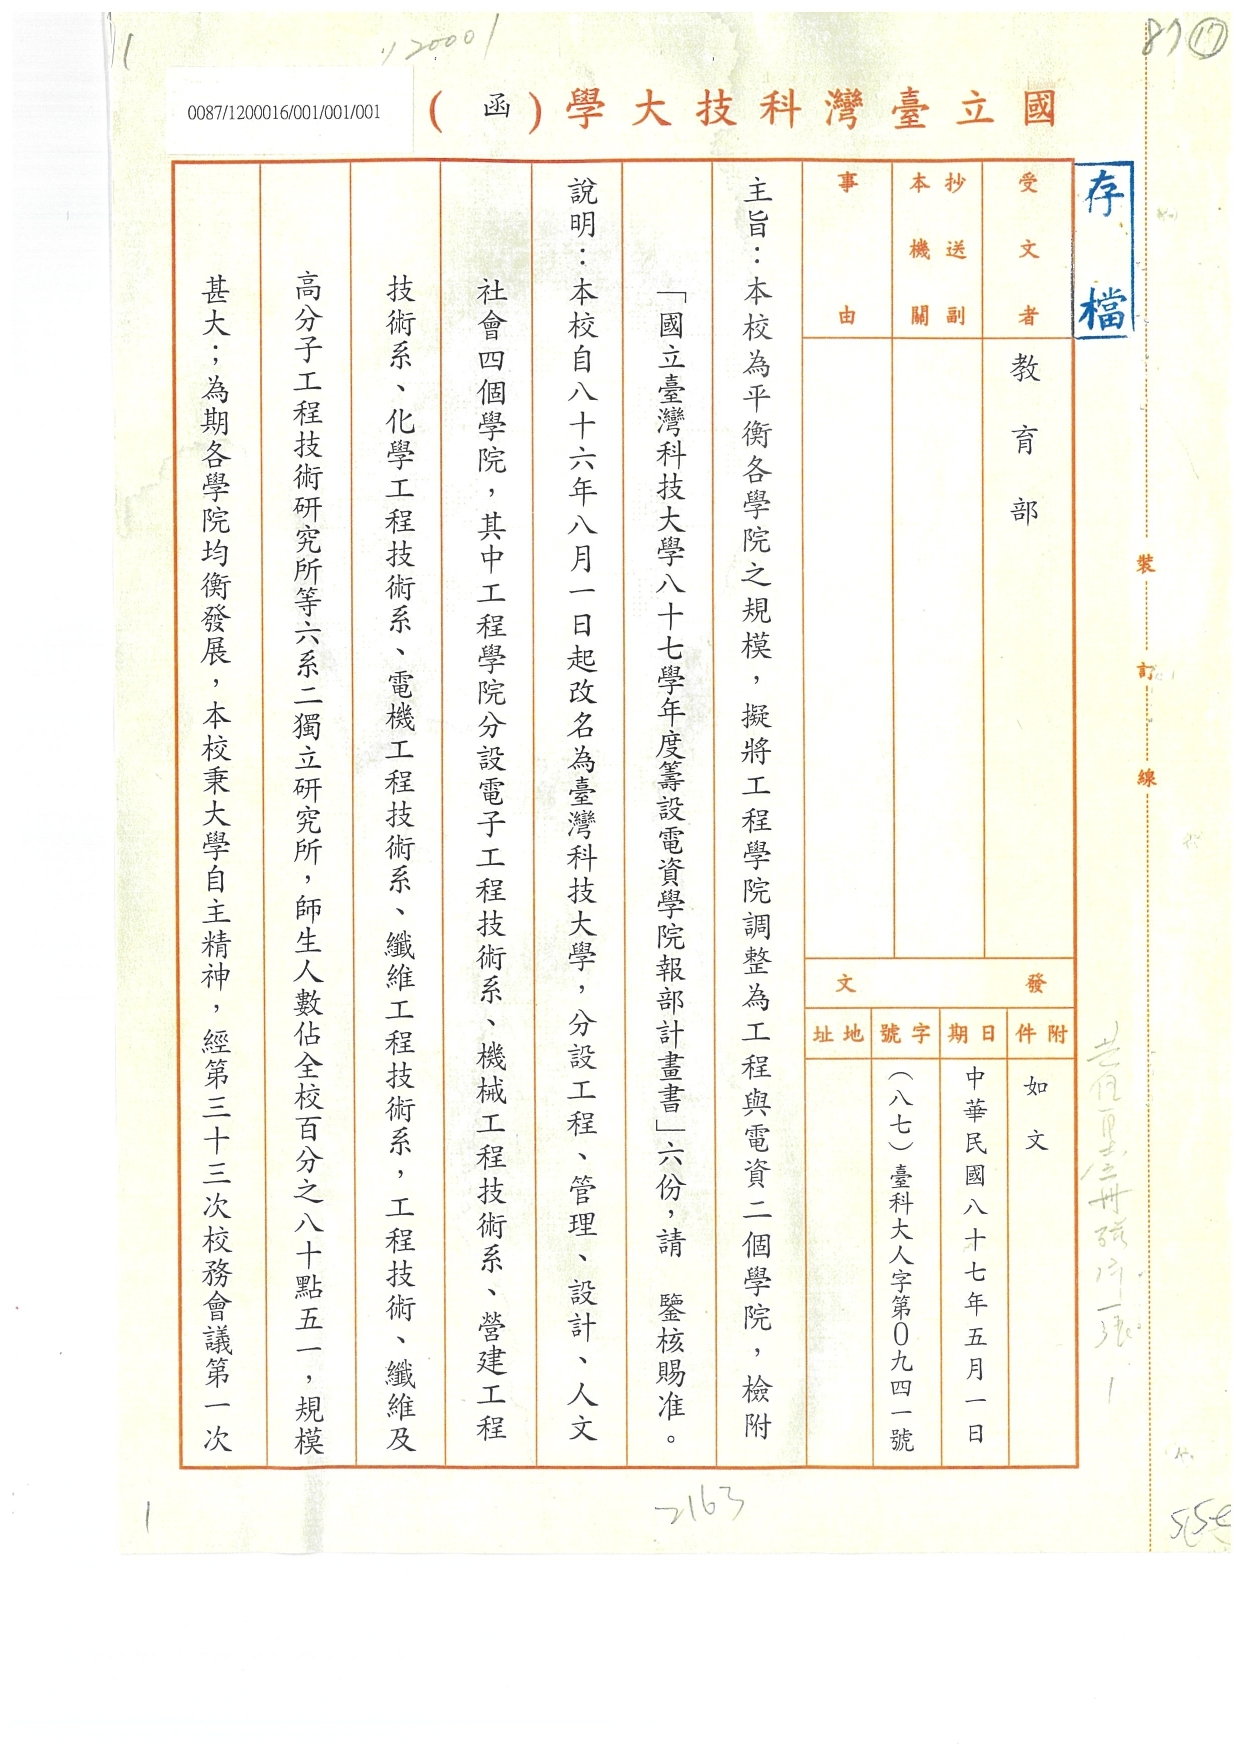 87 17
120001
0087/1200016/001/001/001
國立臺灣科技大學(函)
存檔
受文者
教育部
抄送副
本機關
事由
發文
附件
如文
日期
中華民國八十七年五月一日
字號
(八七)臺科大人字第0九四一號
地址
主旨：本校為平衡各學院之規模，擬將工程學院調整為工程與電資二個學院，檢附
「國立臺灣科技大學八十七學年度籌設電資學院報部計畫書」六份，請　鑒核賜准。
說明：本校自八十六年八月一日起改名為臺灣科技大學，分設工程、管理、設計、人文
社會四個學院，其中工程學院分設電子工程技術系、機械工程技術系、營建工程
技術系、化學工程技術系、電機工程技術系、纖維工程技術系，工程技術、纖維及
高分子工程技術研究所等六系二獨立研究所，師生人數佔全校百分之八十點五一，規模
甚大；為期各學院均衡發展，本校秉大學自主精神，經第三十三次校務會議第一次
裝訂線
1
2163